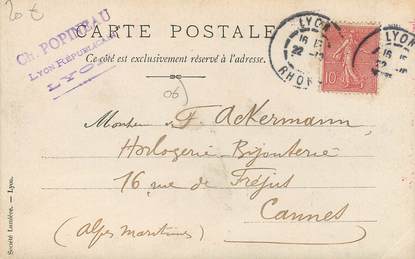 20 €
CARTE POSTALE
Ch. POPINEAU
LYON RÉPUBLICAIN
LYON
Ce côté est exclusivement réservé à l'adresse.
LYON
RHONE
10
(06)
Monsieur F. Ackermann,
Horlogerie Bijouterie
16 rue de Fréjus
Cannes
(Alpes Maritimes)
Société Lumière. — Lyon.